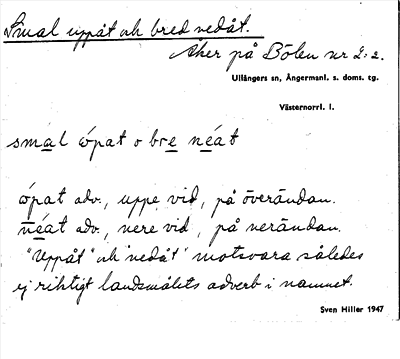 Smal uppåt och bred nedåt.
Åker på Bölen nr 2:2.
Ullångers sn, Ångermanl. s. doms. tg.
Västernorrl. l.
smal ópat o bre néat
ópat adv., uppe vid, på överändan.
néat adv., nere vid, på nerändan.
"Uppåt" och "nedåt" motsvara således
ej riktigt landsmålets adverb i namnet.
Sven Hiller 1947